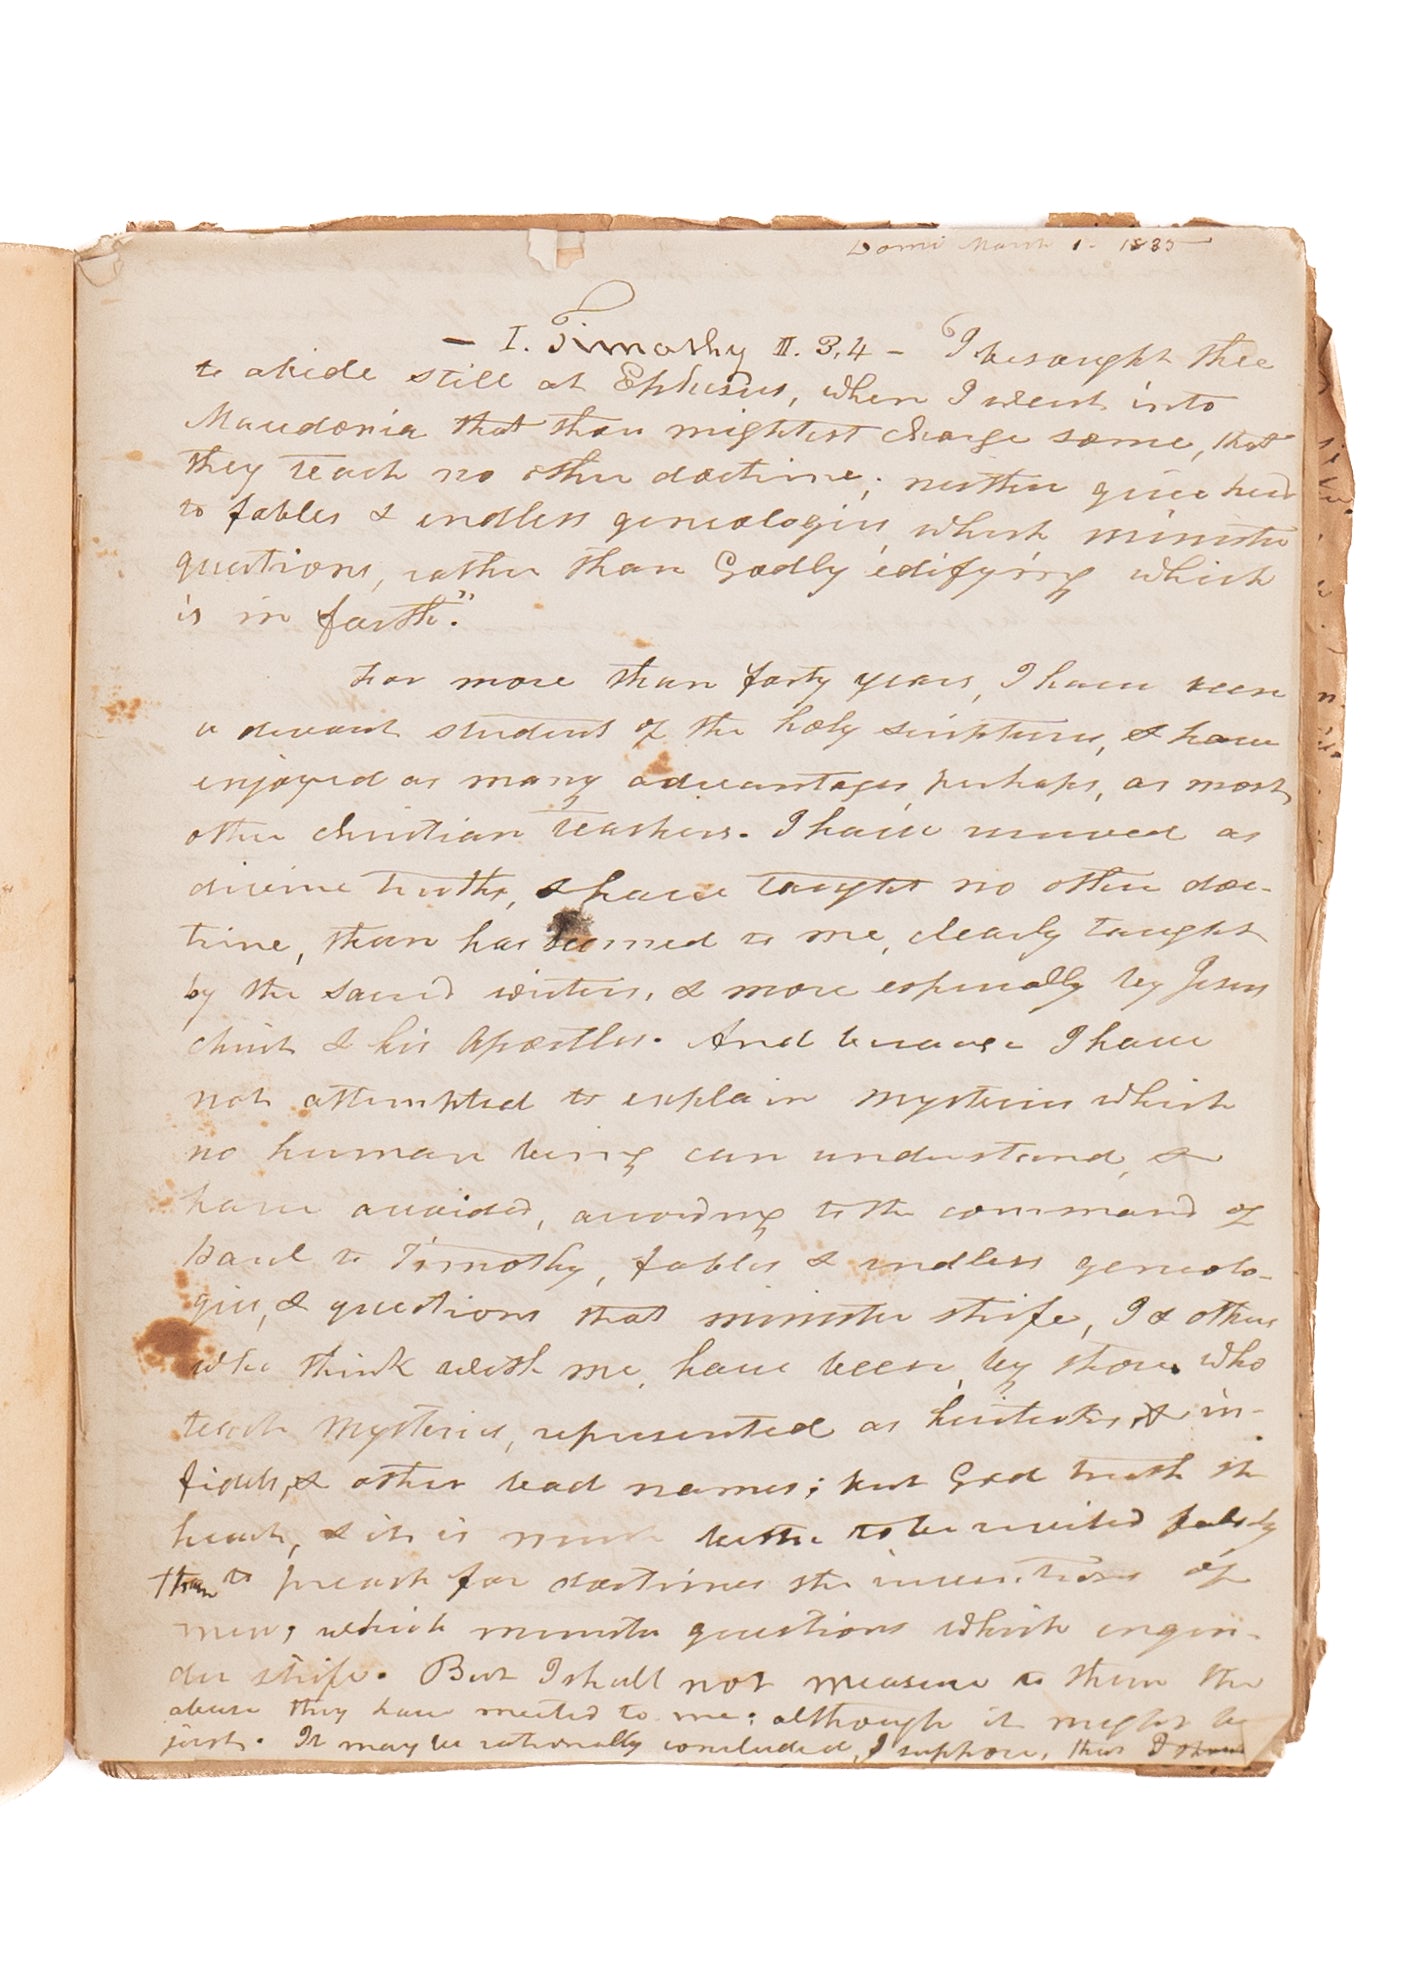 Domi March 1. 1835
— I. Timothy II. 3,4 — I besought thee
to abide still at Ephesus, when I went into
Macedonia that thou mightest charge some, that
they teach no other doctrine; neither give heed
to fables & endless genealogies, which minister
questions, rather than Godly edifying which
is in faith."
For more than forty years, I have been
a devout student of the holy scriptures, & have
enjoyed as many advantages, perhaps, as most
other christian teachers. I have received as
divine truths, & have taught no other doc-
trine, than has seemed to me, clearly taught
by the sacred writers, & more especially by Jesus
christ & his Apostles. And because I have
not attempted to explain mysteries which
no human being can understand, &
have avoided, according to the command of
Paul to Timothy, fables & endless genealo-
gies, & questions that minister strife, I & others
who think with me, have been, by those who
teach mysteries, represented as heretics, & in-
fidels, & other bad names; but God trieth the
heart, & it is much better to be reviled falsely
than to preach for doctrines the inventions of
men, which minister questions which engen-
der strife. But I shall not measure to them the
abuse they have meeted to me; although it might be
just. It may be rationally concluded, I suppose, that I